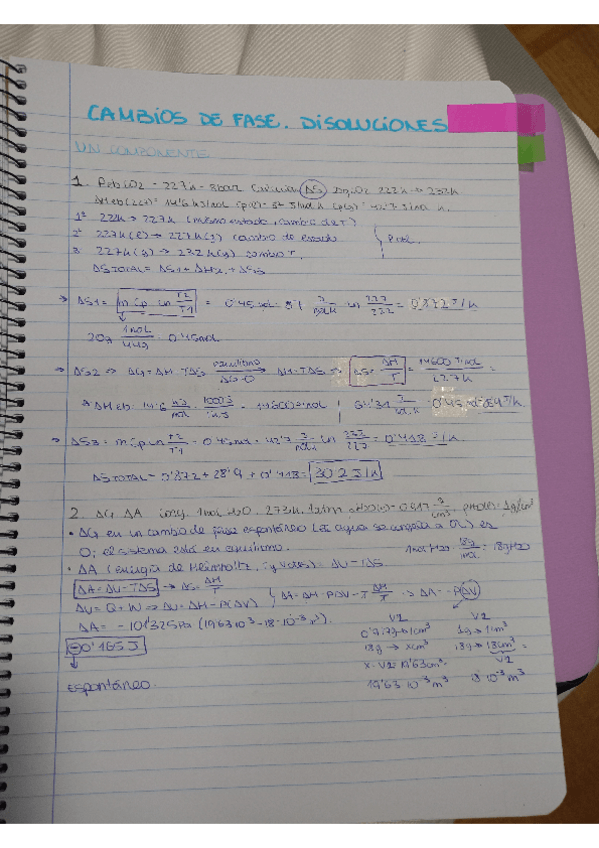 CAMBIOS DE FASE. DISOLUCIONES
UN COMPONENTE
1. Peb CO2 = 227k - 8bar ΔS 20g CO2 222k → 232k
ΔHeb (224)= 14'6 kJ/mol
1º 222k → 227k (mismo estado, cambio de T)
2º 227k (l) → 227k (g) cambio de estado
3 227k (g) → 232k (g) cambio T.
P cte.
ΔSTOTAL = ΔS1 + ΔS3
→ ΔS1 = m Cp ln T2/T1 = 0'45mol · J/mol k ln 227/222 = 0'872 J/k
20g 1mol/44g = 0'45mol
→ ΔS2 → ΔG = ΔH - TΔS equilibrio ΔG=0 ΔH = TΔS → ΔS = ΔH/T = 14600 J/mol / 227k =
→ ΔHeb: 14'6 kJ/mol 1000J/1kJ = 14600 J/mol | 64'31 J/mol k · 0'45mol = J/k
→ ΔS3 = m Cp ln T2/T1 = 0'45mol · 42'7 J/mol k ln 232/227 = 0'418 J/k
ΔSTOTAL = 0'872 + 28'9 + 0'418 = 30'2 J/k
2. ΔG ΔA 1mol H2O. 273k. 1atm = 0'917 g/cm3. = 1g/cm3
• ΔG en un cambio de fase espontáneo (el agua se congela a 0ºC) es
0; el sistema está en equilibrio. 1mol H2O · 18g/1mol = 18g H2O
• ΔA (energía de Helmholtz, = ΔU - TΔS
ΔA = ΔU - TΔS → ΔS = ΔH/T
ΔU = Q + W → ΔU = ΔH - P(ΔV)
ΔA = ΔH - PΔV - T ΔH/T → ΔA = -P(ΔV)
ΔA = - 101'325Pa (19'63·10-3 - 18·10-3)
-0'165 J
Espontáneo.
V2 V2
0'917g → 1cm3 1g → 1cm3
18g → xcm3 18g → 18cm3
x = V2 = 19'63cm3 V2
19'63·10-3 m3 18·10-3 m3